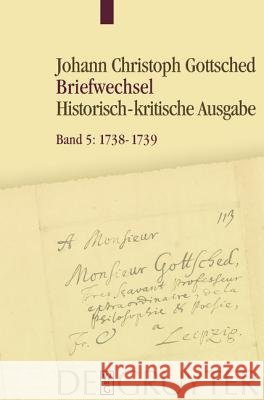 Johann Christoph Gottsched
Briefwechsel
Historisch-kritische Ausgabe
Band 5: 1738-1739
113
A Monsieur
Monsieur Gottsched,
Tres savant Professeur
extraordinaire, de la
Philosophie & Poesie,
Fr. a Leipzig.
DE GRUYTER